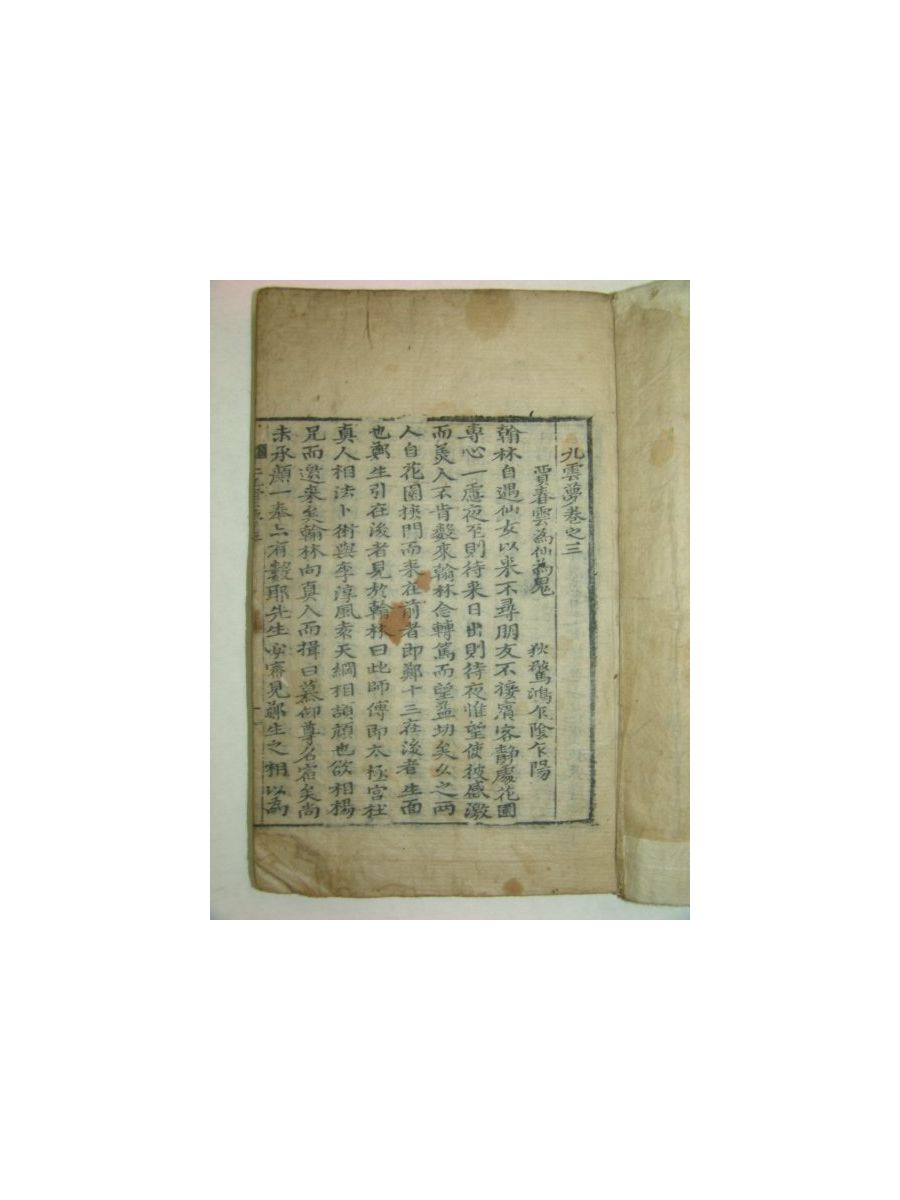 九雲夢卷之三
賈春雲為仙為鬼 狄驚鴻乍陰乍陽
翰林自遇仙女以來不尋朋友不接賓客静處花園
專心一慮夜至則待来日出則待夜惟望使彼感激
而美人不肯數來翰林念轉篤而望益切矣久之兩
人自花園挾門而来在前者即鄭十三在後者生面
也鄭生引在後者見於翰林曰此師傅即太極宮杜
真人相法卜術與李淳風袁天綱相頡頏也欲相楊
兄而還来矣翰林向真人而揖曰慕仰尊名宿矣尚
未承顔一奉亦有數耶先生審見鄭生之相以為